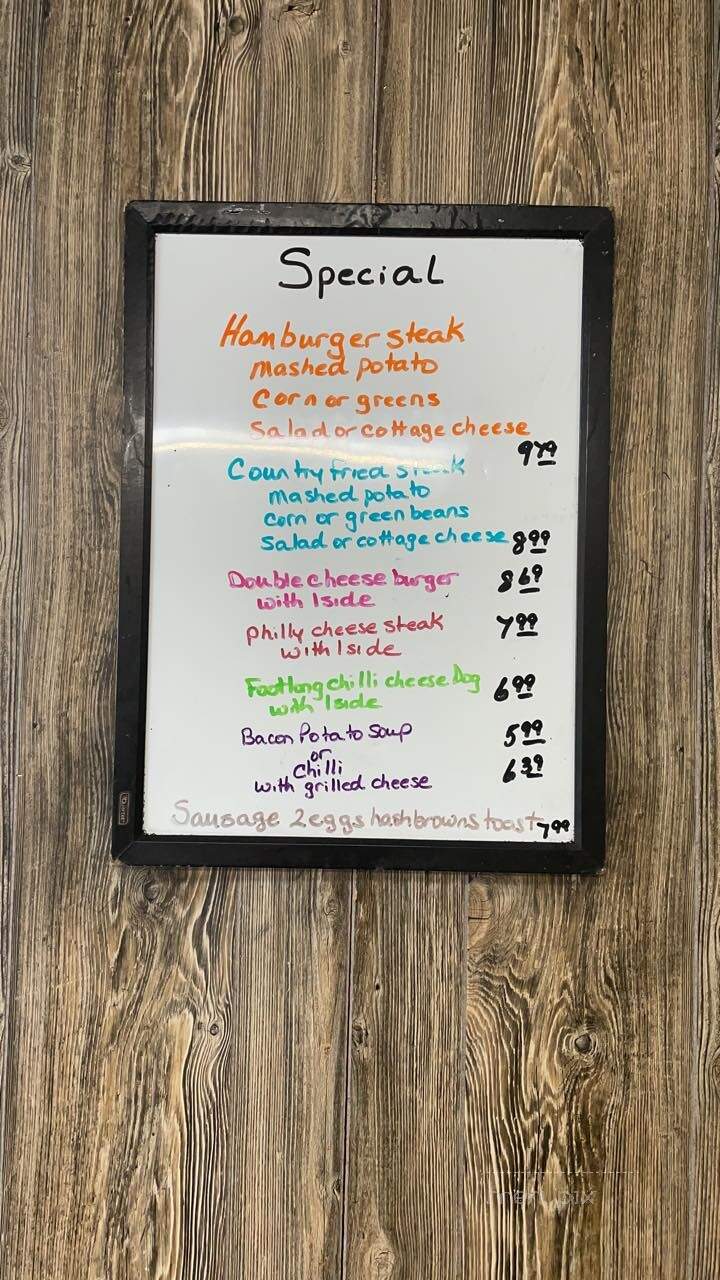 Special
Hamburger steak
mashed potato
Corn or greens
Salad or cottage cheese
9 79
Country fried steak
mashed potato
corn or green beans
Salad or cottage cheese 8 99
Double cheese burger 8 69
with 1 side
philly cheese steak 7 99
with 1 side
Footlong chilli cheese Dog 6 99
with 1 side
Bacon Potato Soup 5 99
or
Chilli 6 39
with grilled cheese
Sausage 2 eggs hashbrowns toast 7 99